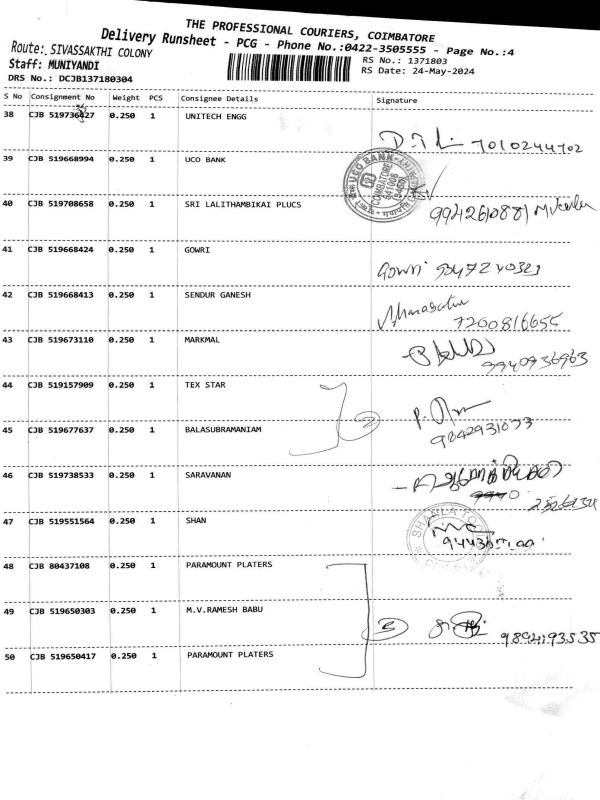 THE PROFESSIONAL COURIERS, COIMBATORE
Delivery Runsheet - PCG - Phone No.:0422-3505555 - Page No.:4
Route: SIVASSAKTHI COLONY
Staff: MUNIYANDI
DRS No.: DCJB137180304
RS No.: 1371803
RS Date: 24-May-2024
S No Consignment No Weight PCS Consignee Details Signature
38 CJB 519736427 0.250 1 UNITECH ENGG
7010244702
39 CJB 519668994 0.250 1 UCO BANK
UCO BANK
COIMBATORE
641006
40 CJB 519708658 0.250 1 SRI LALITHAMBIKAI PLUCS
9942610881
41 CJB 519668424 0.250 1 GOWRI
Gowri 9347240323
42 CJB 519668413 0.250 1 SENDUR GANESH
7200816655
43 CJB 519673110 0.250 1 MARKMAL
9940936963
44 CJB 519157909 0.250 1 TEX STAR
2
45 CJB 519677637 0.250 1 BALASUBRAMANIAM
9842931073
46 CJB 519738533 0.250 1 SARAVANAN
47 CJB 519551564 0.250 1 SHAN
48 CJB 80437108 0.250 1 PARAMOUNT PLATERS
49 CJB 519650303 0.250 1 M.V.RAMESH BABU
3
9894193535
50 CJB 519650417 0.250 1 PARAMOUNT PLATERS